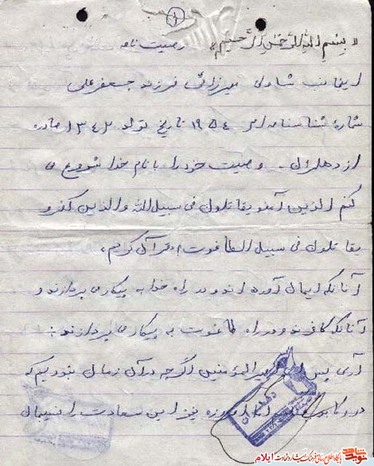 ۱
«بسم الله الرحمن الرحیم» وصیت نامه
اینجانب شاولی میرزائی فرزند جعفرعلی
شماره شناسنامه‌ام ۱۹۵۴ تاریخ تولد ۱۳۴۲ صادره
از دهلران. وصیت خود را با نام خدا شروع می
کنم الذین آمنو یقاتلون فی سبیل الله والذین کفرو
یقاتلون فی سبیل الطاغوت، قرآن کریم،
آنانکه ایمان آورده اند و در راه خدا به پیکار می پردازند و
آنانکه کافرند و در راه طاغوت به پیکار می پردازند:
آری پس اگر چه در آن زمان نبودیم که
در این سعادت را